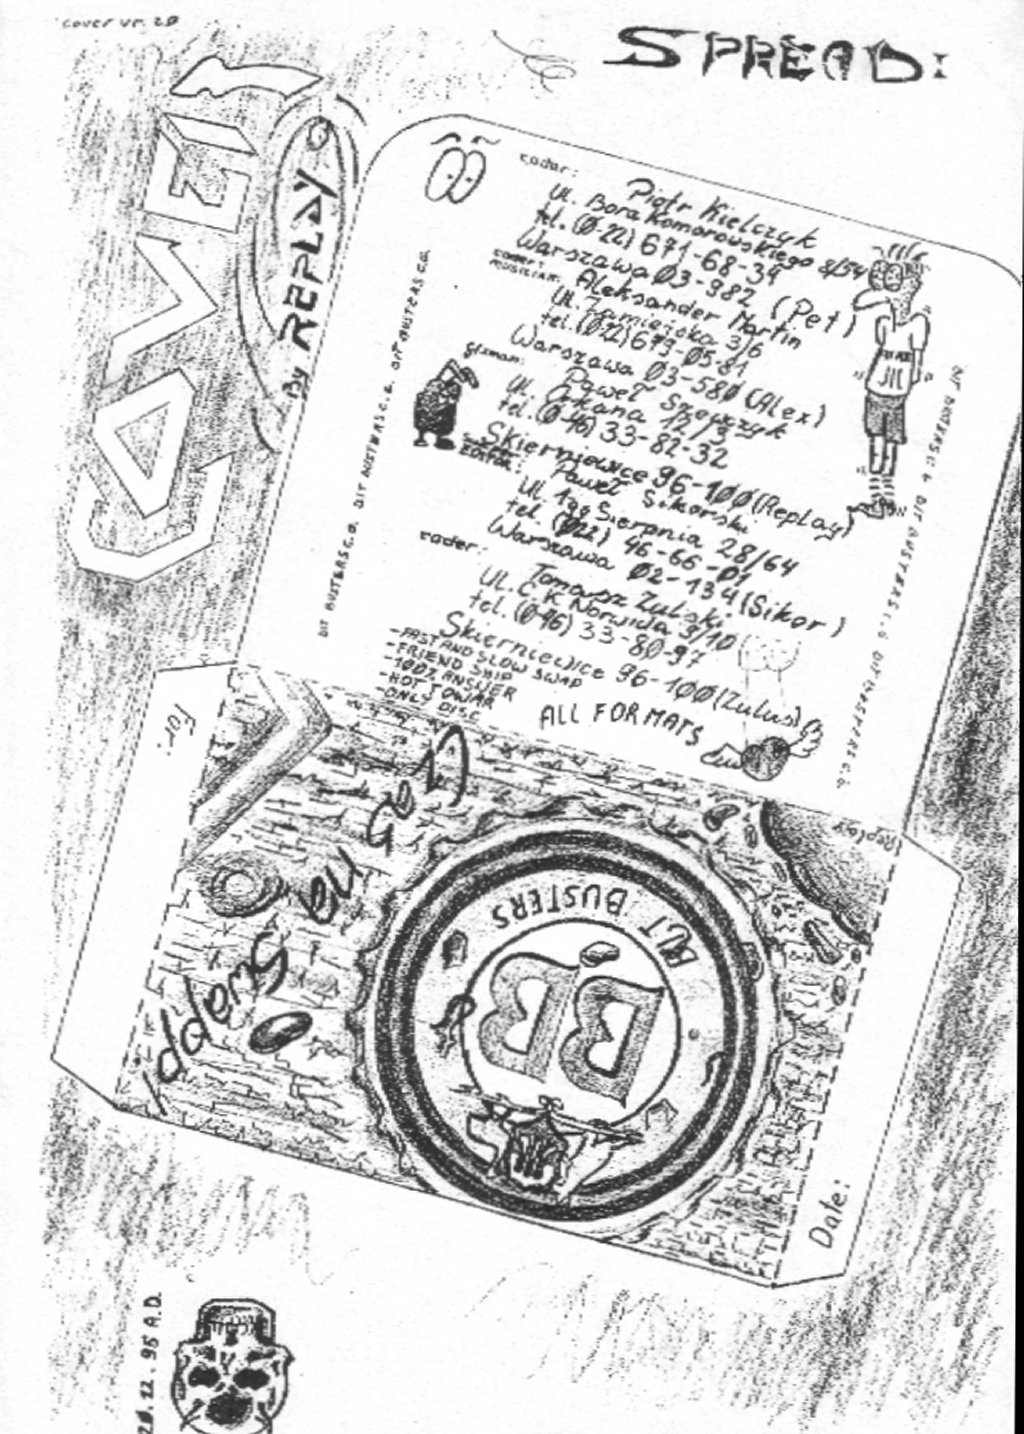 cover vr. 2.0
SPREAD:
COVER
By REPLAY
coder:
Piotr Kielczyk
Ul. Bora Komorowskiego 8/54
tel. (0-22) 671-68-39
Warszawa 03-982 (Pet)
coder:
musician:
Aleksander Martin
Ul. Zamiejska 3/6
tel. (0-22) 679-05-81
Warszawa 03-580 (Alex)
Paweł Szewczyk
Ul. Orkana 12/3
tel. (0-46) 33-82-32
Skierniewice 96-100 (Replay)
EDITOR:
Paweł Sikorski
Ul. 1go Sierpnia 28/64
tel. (022) 46-66-01
Warszawa 02-134 (Sikor)
coder:
Tomasz Zulski
Ul. C. K. Norwida 3/10
tel. (0-46) 33-80-97
Skierniewice 96-100 (Zulus)
-FAST AND SLOW SWAP
-FRIEND SHIP
-100% ANSWER
-HOT TOWAR
-ONLY DISC
ALL FORMATS
BIT BUSTERS C.O. BIT BUSTERS C.O. BIT BUSTERS C.O.
BIT BUSTERS C.O. BIT BUSTERS C.O. BIT BUSTERS C.O.
For:
Czas na Stuppid
Replay
BIT BUSTERS
BB
Date:
20.12.95 A.D.